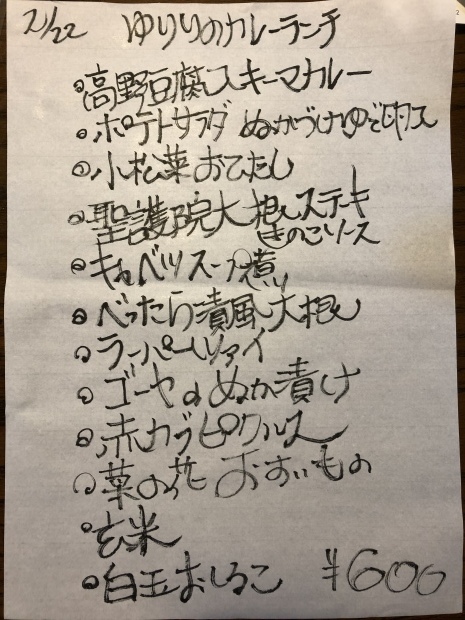 2/22 ゆりりのカレーランチ
高野豆腐スキーマカレー
ポテトサラダ ぬかづけゆで卵入
小松菜おひたし
聖護院大根ステーキ
きのこソース
キャベツスープ煮
べったら漬風大根
ラーパーツァイ
ゴーヤのぬか漬け
赤カブピクルス
菜の花 おすいもの
玄米
白玉おしるこ ¥600